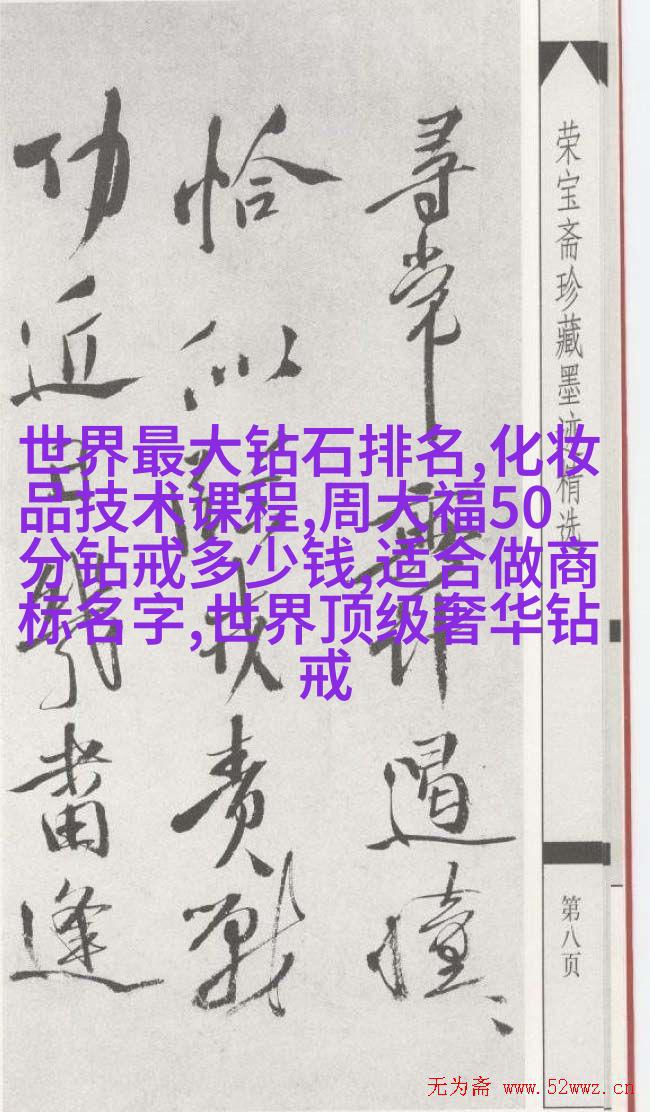 荣宝斋珍藏墨迹精选
第八页
尋常
恰似責戰
功近逢
世界最大钻石排名,化妆
品技术课程,周大福50
分钻戒多少钱,适合做商
标名字,世界顶级奢华钻
戒
无为斋 www.52wwz.cn